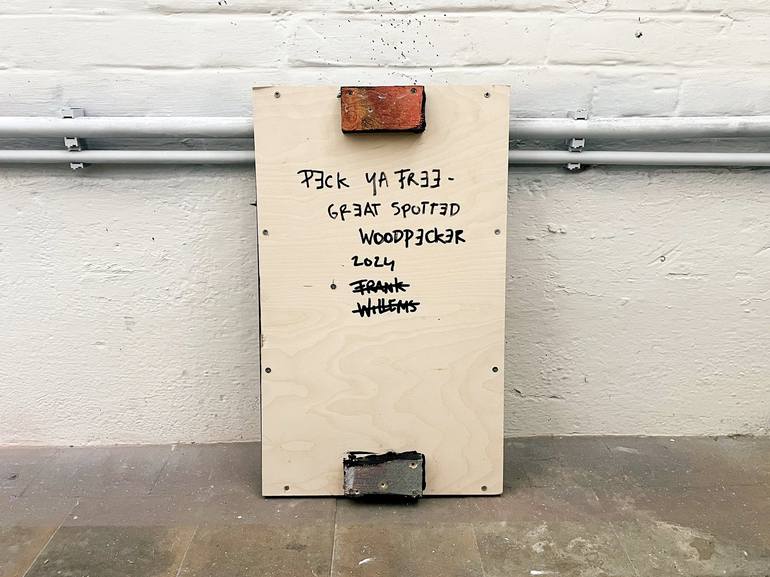 PECK YA FREE-
GREAT SPOTTED
WOODPECKER
2024
FRANK
WILLEMS